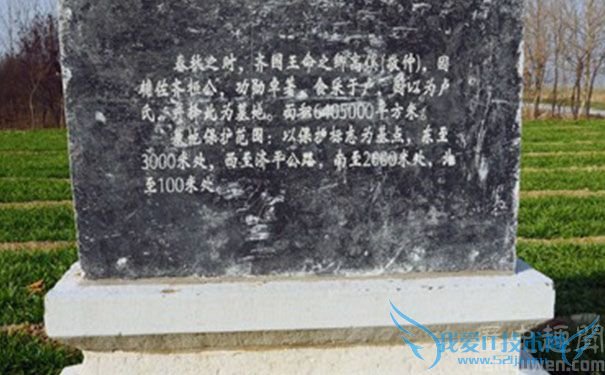 春秋之时，齐国王命之卿高傒(敬仲)，因
辅佐齐桓公，功勋卓著，食采于卢，因以为卢
氏，并择此为墓地。面积6405000平方米。
墓地保护范围：以保护标志为基点，东至
3000米处，西至济平公路，南至2000米处，北
至100米处。
我爱IT技术网
www.52ij.com